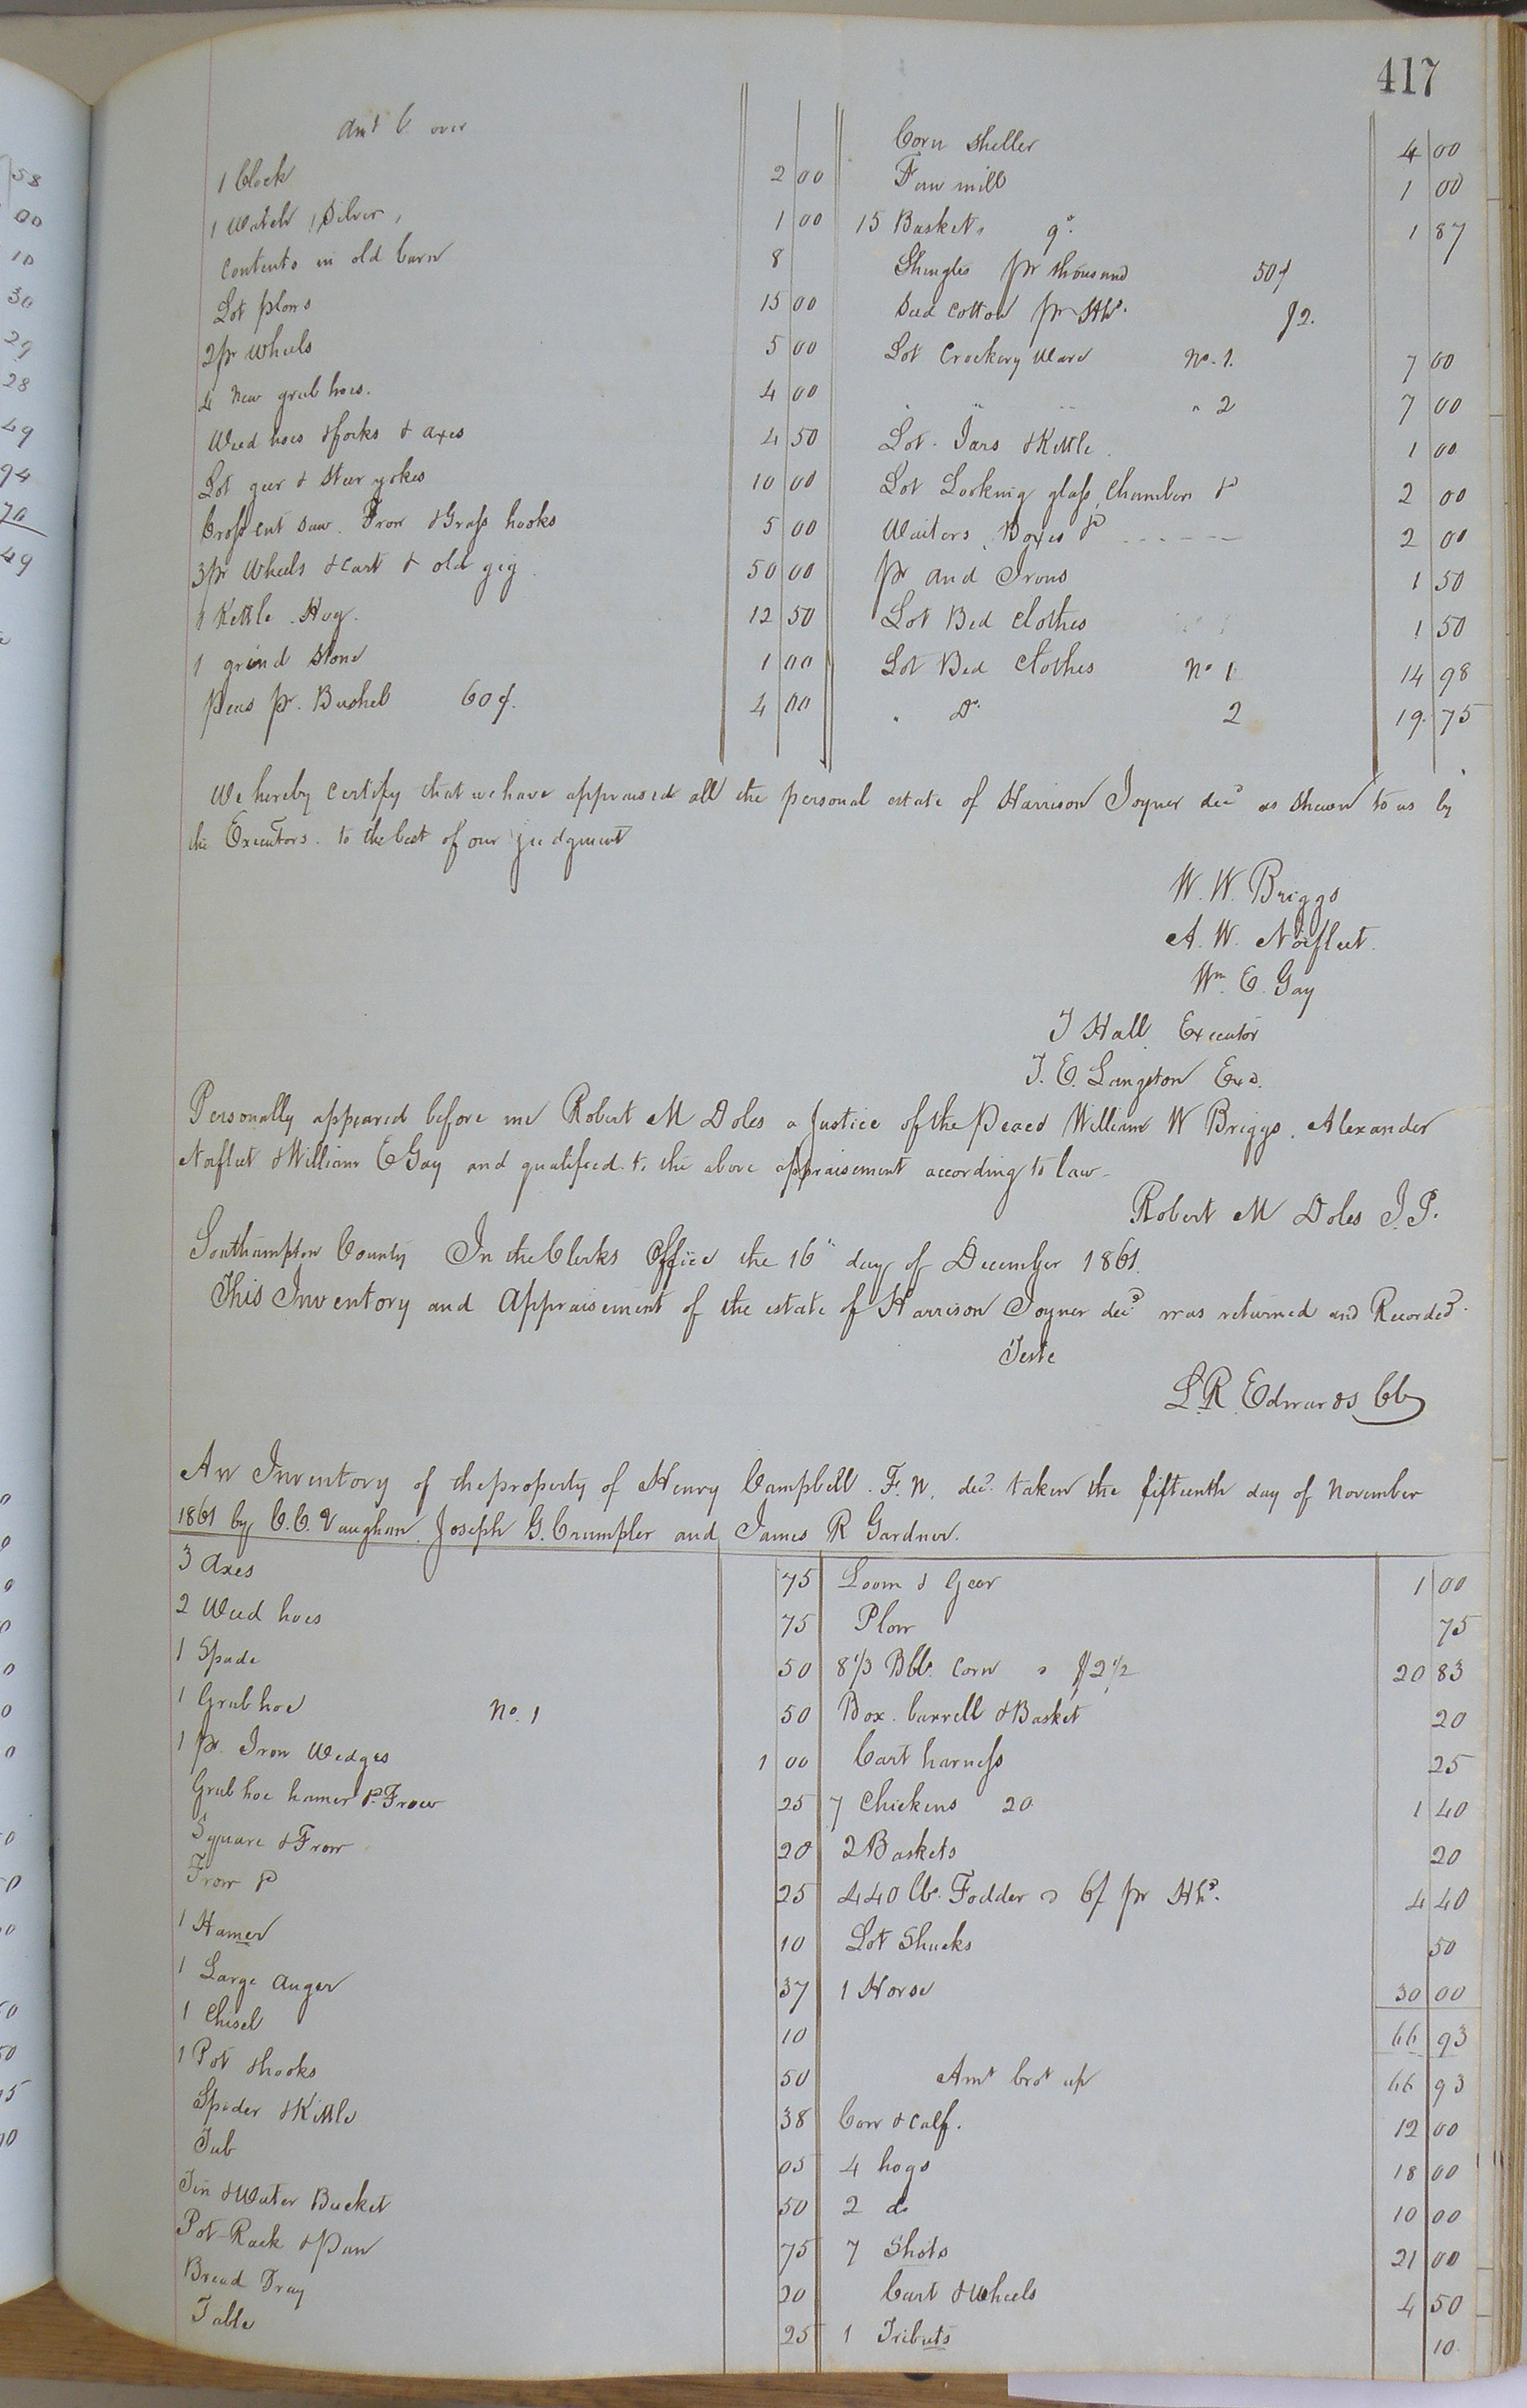 417
Amt C. over
1 Clock 2 00
1 Watch, Silver, 1 00
Contents in old barn 8
Lot plows 15 00
2 pr Wheels 5 00
4 New grub hoes. 4 00
Weed hoes & forks & axes 4 50
Lot geer & Steer yokes 10 00
Cross cut Saw. Frow & Grass hooks 5 00
3 pr Wheels & Cart & old gig 50 00
1 Kettle. Hog. 12 50
1 grind Stone 1 00
Peas pr. Bushel 60 ¢. 4 00
Corn Sheller 4 00
Fan mill 1 00
15 Baskets 1 87
Shingles pr thousand 50¢
Seed Cotton pr Hd. $2.
Lot Crockery Ware No. 1. 7 00
" " " " 2 7 00
Lot. Jars & Kettle. 1 00
Lot Looking glass, Chambers & 2 00
Waiters, Boxes & 2 00
pr And Irons 1 50
Lot Bed Clothes 1 50
Lot Bed Clothes No 1 14 98
" Do. 2 19. 75
We hereby Certify that we have appraised all the personal estate of Harrison Joyner decd as shewn to us by
the Executors. to the best of our judgment
W. W. Briggs
A. W. Norfleet.
Wm. E. Gay
J Hall Executor
J. E. Langston Exo.
Personally appeared before me Robert M Doles a Justice of the Peace William W Briggs. Alexander
Norfleet & William E Gay and qualifeed. to the above appraisement according to law-
Robert M Doles J. P.
Southampton County In the Clerks Office the 16" day of December 1861.
This Inventory and Appraisement of the estate of Harrison Joyner decd was returned and Recorded.
Teste
L. R. Edwards Clk
An Inventory of the property of Henry Campbell. F. N. decd. taken the fifteenth day of November
1861 by C. C. Vaughan. Joseph G. Crumpler and James R Gardner.
3 Axes 75
2 Weed hoes 75
1 Spade 50
1 Grub hoe No. 1 50
1 pr. Iron Wedges 1 00
Grub hoe hamer & Frow 25
Square & Frow 20
Frow & 25
1 Hamer 10
1 Large Auger 37
1 Chisel 10
1 Pot & hooks 50
Spider & Kettle 38
Tub 05
Tin & Water Bucket 50
Pot-Rack & Pan 75
Bread Tray 20
Table 25
Loom & Gear 1 00
Plow 75
8 1/3 Bbl. Corn @ $2 1/2 20 83
Box. barrell & Basket 20
Cart harness 25
7 Chickens 20 1 40
2 Baskets 20
440 lb. Fodder @ 6/ pr Hd. 4 40
Lot Shucks 50
1 Horse 30 00
66 93
Amt brot up 66 93
Cow & calf. 12 00
4 hogs 18 00
2 do 10 00
7 Shots 21 00
Cart & Wheels 4 50
1 Tributs 10